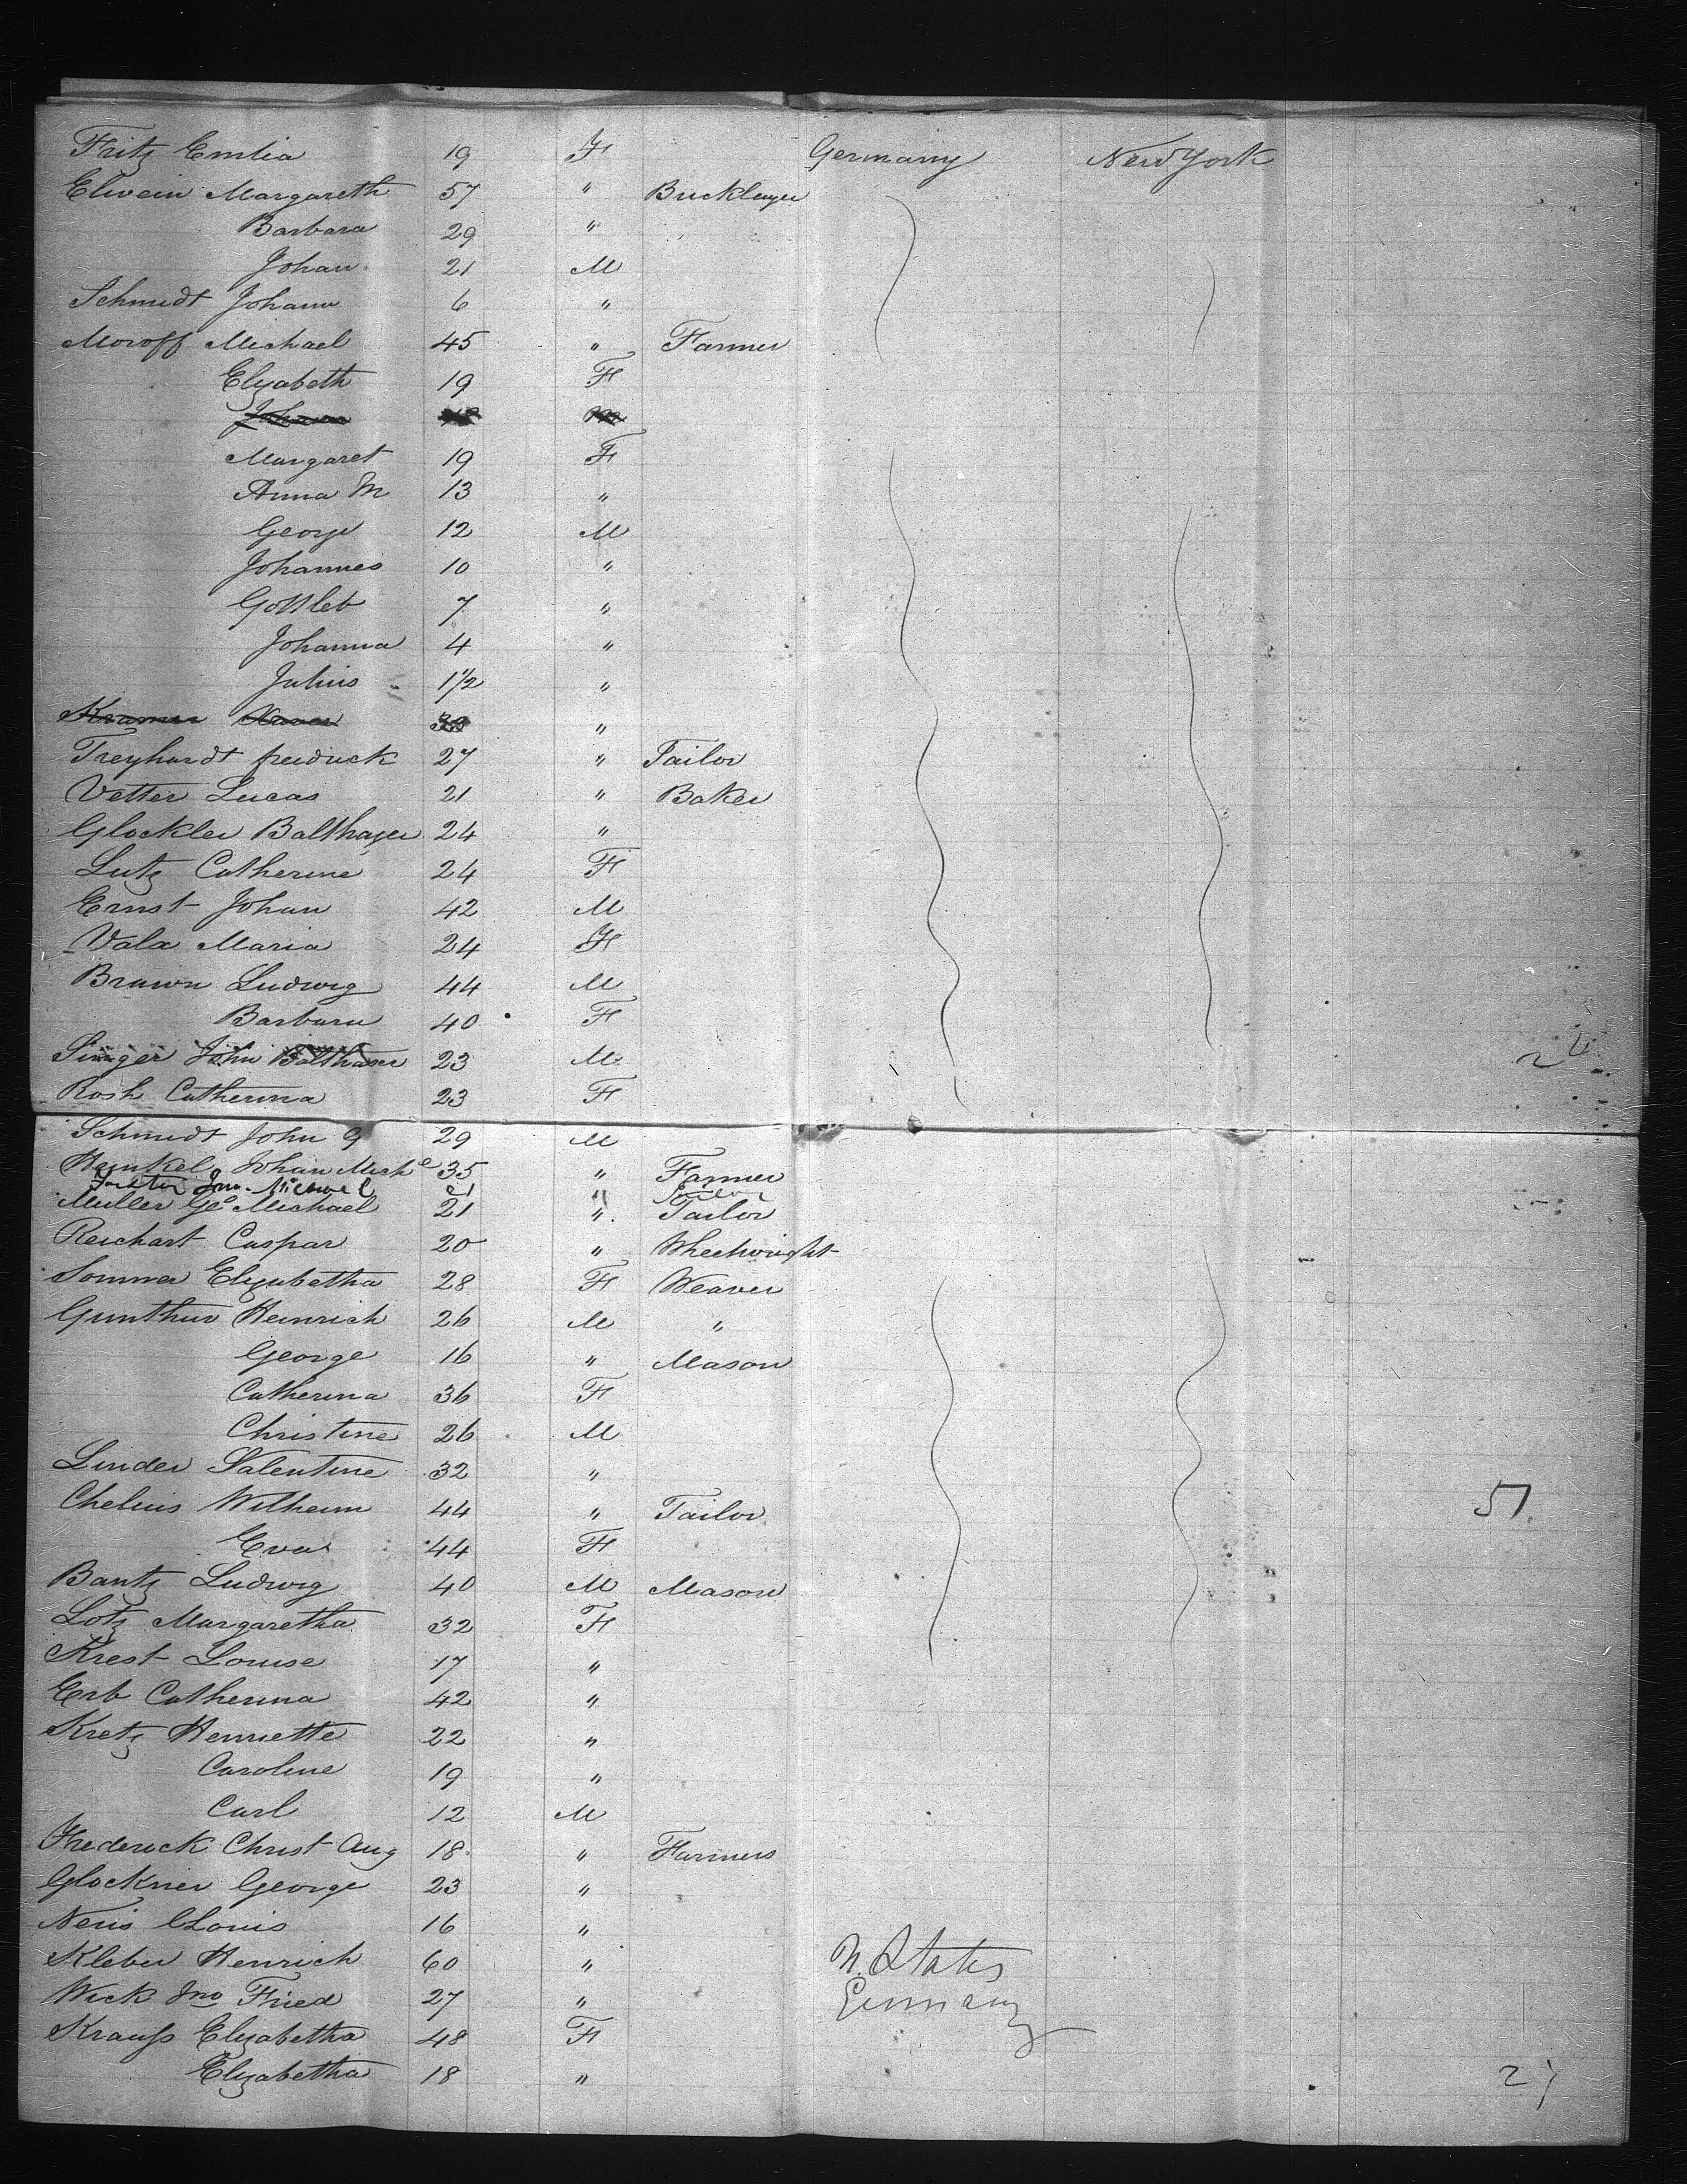 Fritz Emlia 19 F Germany New York
Elwein Margareth 57 " Bricklayer
Barbara 29 "
Johan 21 M
Schmidt Johann 6 "
Moroff Michael 45 " Farmer
Elizabeth 19 F
Johann M
Margaret 19 F
Anna M 13 "
George 12 M
Johannes 10 "
Gottleb 7 "
Johanna 4 "
Julius 1 1/2 "
Kramer Xaver 39 "
Treyhardt fredrick 27 " Tailor
Vetter Lucas 21 " Baker
Glockler Balthazer 24 "
Lutz Catherine 24 F
Ernst Johan 42 M
Vala Maria 24 F
Brawn Ludwig 44 M
Barbara 40 F
Singer John Balthaser 23 M
Rosh Catherina 23 F
Schmidt John G 29 M
Heinkel Johan Mich 35 " Farmer
Jno. Michael 21 "
Muller Geo Michael 21 " Tailor
Reichart Caspar 20 " Wheelwright
Sommer Elizabetha 28 F Weaver
Gunthur Heinrich 26 M "
George 16 " Mason
Catherina 36 F
Christine 26 M
Linder Valentine 32 "
Chelius Wilheim 44 " Tailor 51
Eva 44 F
Bantz Ludwig 40 M Mason
Lotz Margaretha 32 F
Krest Louise 17 "
Erb Catherina 42 "
Kretz Henriette 22 "
Caroline 19 "
Carl 12 M
Frederick Christ Aug 18 " Farmers
Glockner George 23 "
Neris Louis 16 "
Kleber Henrich 60 " U. States
Wick Jno Fried 27 " Germany
Krauss Elizabetha 48 F
Elizabetha 18 " 27